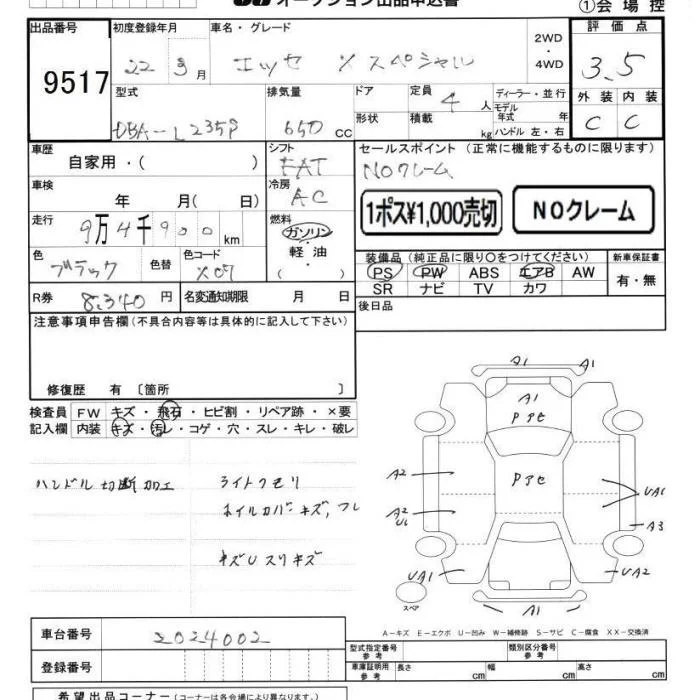 オークション出品申込書
①会場控
出品番号
9517
初度登録年月
22 9月
車名・グレード
エッセ X スペシャル
2WD
・
4WD
評価点
3.5
型式
DBA-L235S
排気量
650 CC
ドア
形状
定員
4人
積載
kg
ディーラー・並行
モデル
年式 年
ハンドル 左・右
外装 内装
C C
車歴
自家用・( )
シフト
FAT
セールスポイント (正常に機能するものに限ります)
NOクレーム
車検
年 月( 日)
冷房
AC
1ポス¥1,000売切
NOクレーム
走行
9万4千900km
燃料
ガソリン
・
軽油
・
( )
色
ブラック
色替
色コード
X07
装備品 (純正品に限り○をつけてください)
新車保証書
PS PW ABS エアB AW
SR ナビ TV カワ
有・無
R券
8,340円
名変通知期限 月 日
後日品
注意事項申告欄(不具合内容等は具体的に記入して下さい)
修復歴 有 〔箇所 〕
検査員
記入欄
FW キズ・飛石・ヒビ割・リペア跡・×要
内装 キズ・汚レ・コゲ・穴・スレ・キレ・破レ
ハンドル切断加工
ライトクモリ
ホイルカバーキズ、フレ
キズUスリキズ
A1 A1
A1
Pアセ
Pアセ
A2
A2
U1
UA1
A3
UA1
UA2
A1
スペア
A-キズ E-エクボ U-凹み W-補修跡 S-サビ C-腐食 XX-交換済
車台番号
2024002
登録番号
型式指定番号
参考
類別区分番号
参考
車庫証明用
参考
長さ cm
幅 cm
高さ cm
希望出品コーナー (コーナーは各会場により異なります。)